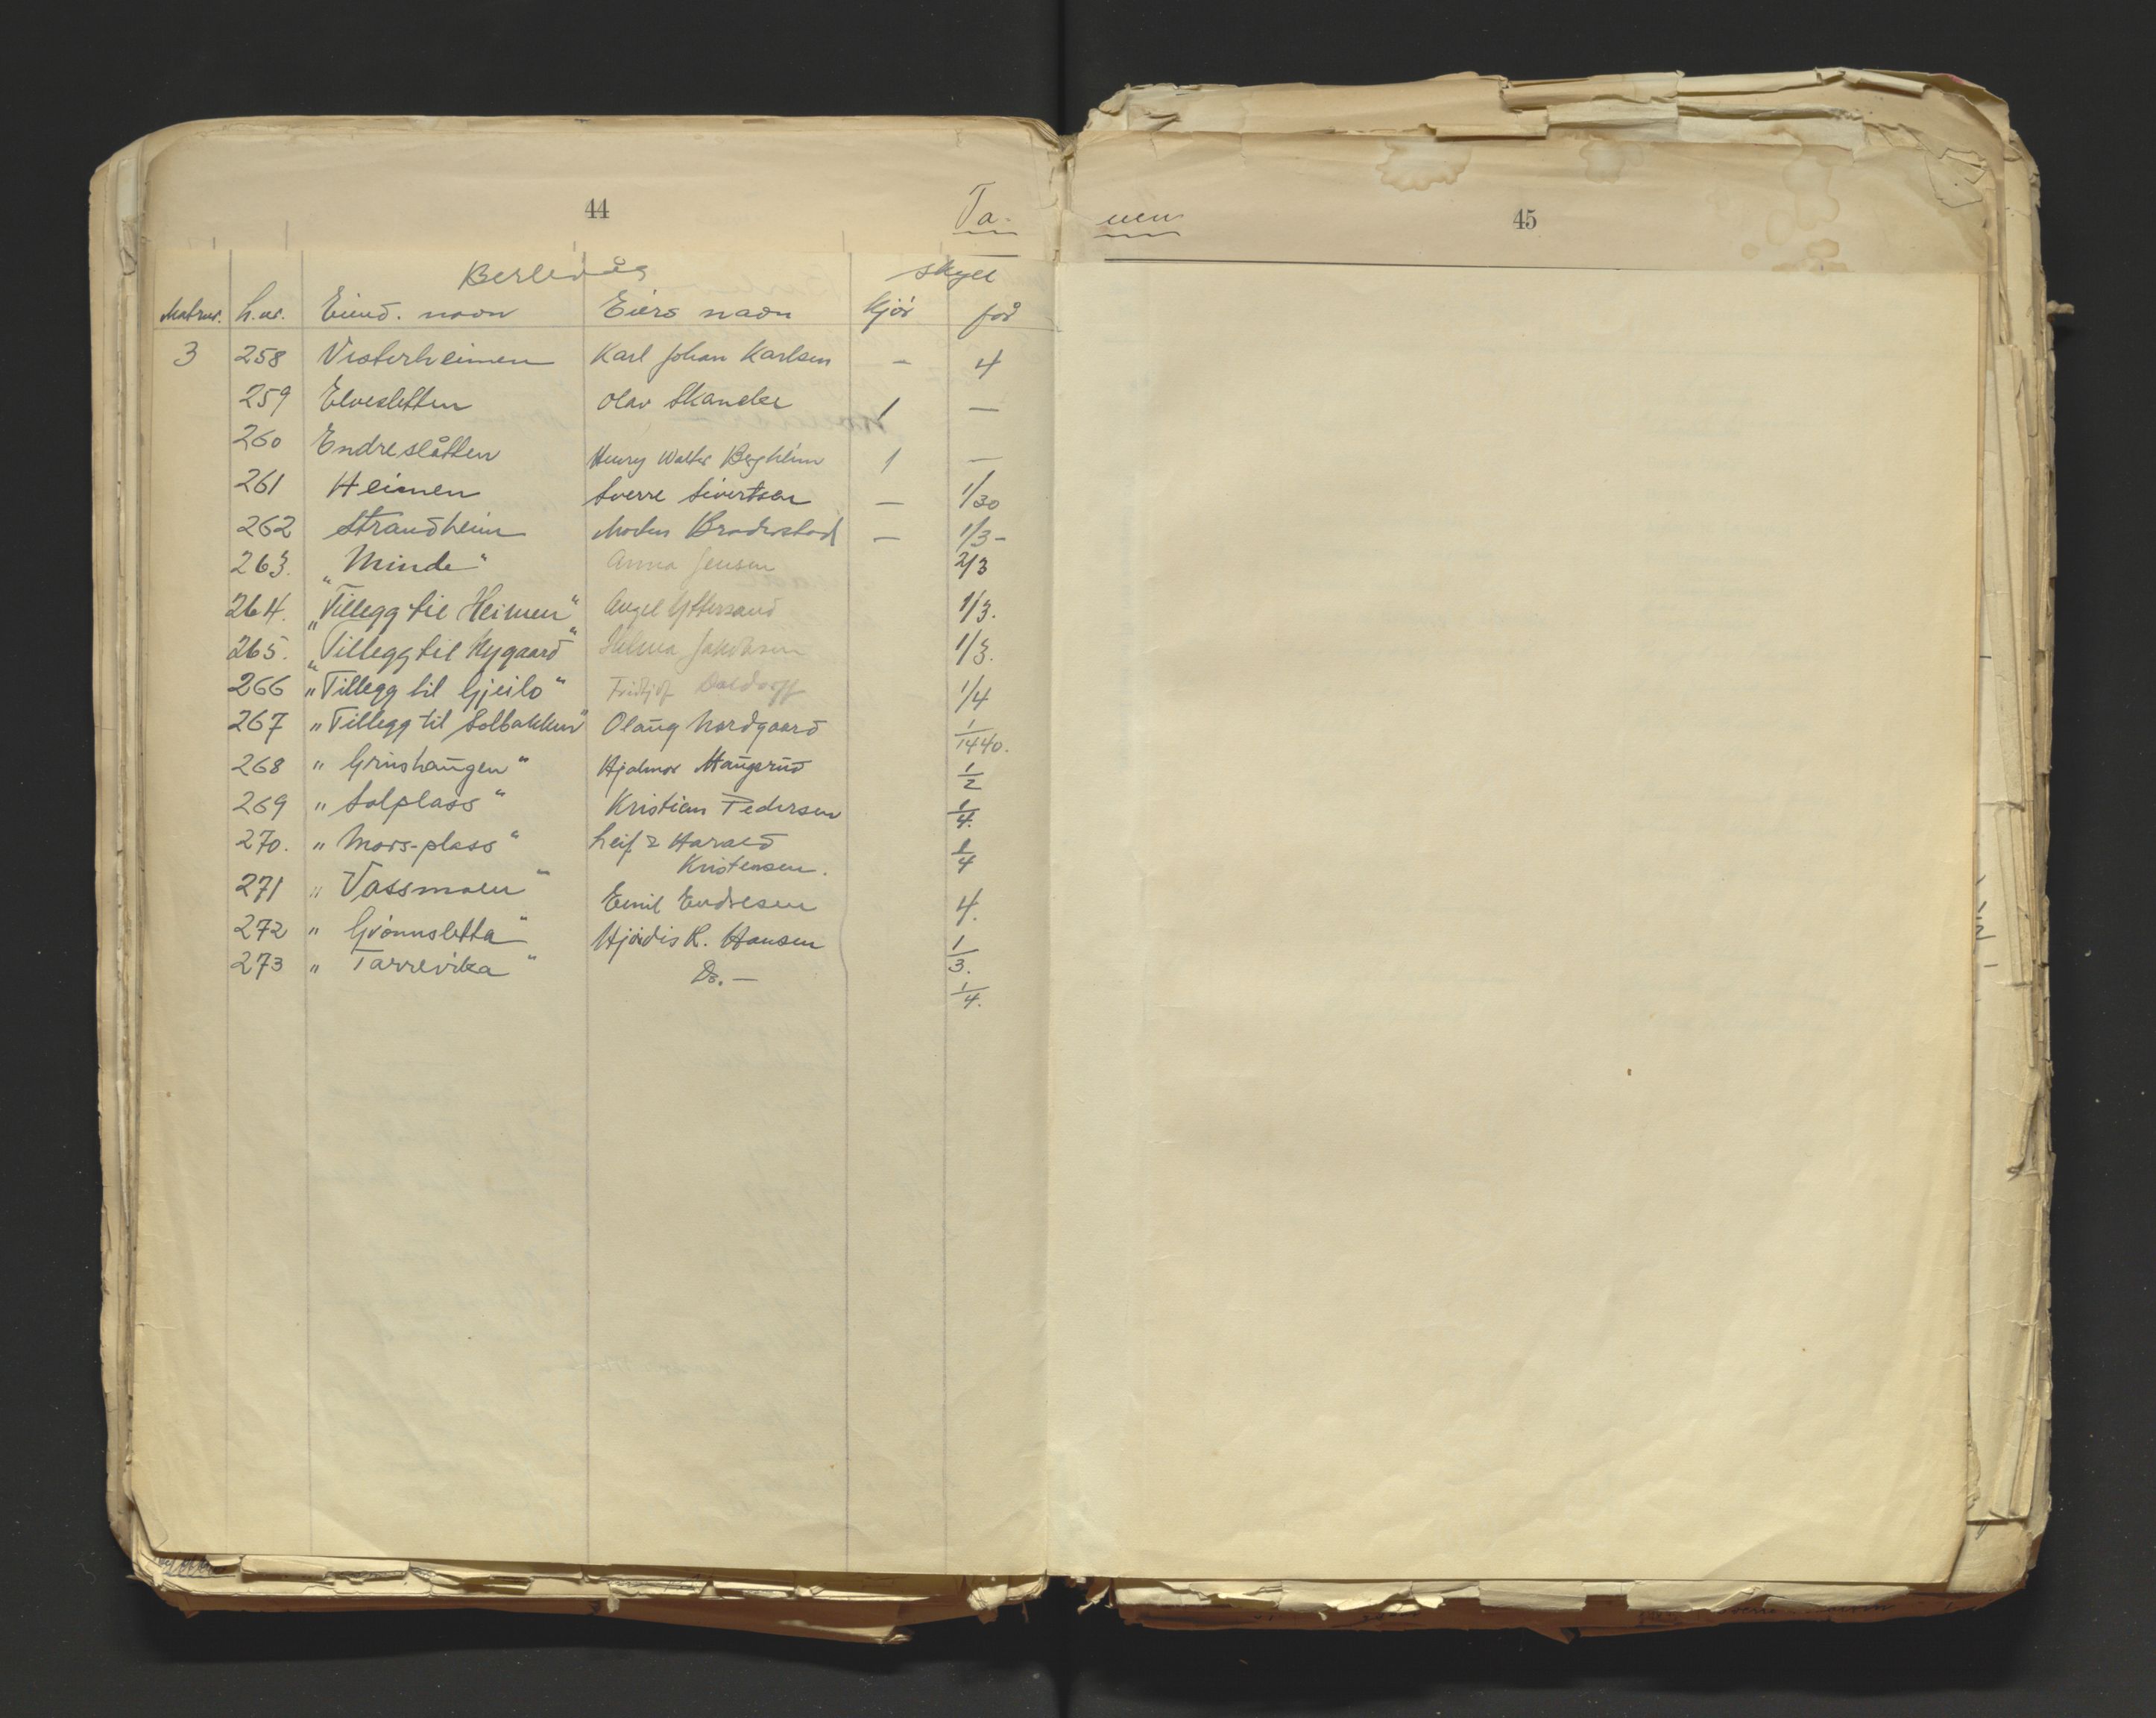 44
Ta-
nen
45
Berlevåg
skyld
Matrnr. L.nr. Eiend. navn Eiers navn kjør får
3 258 Vesterheimen Karl Johan Karlsen — 4
259 Elvesletten Olav Skancke 1 —
260 Endreslåtten Henry Walter Bergheim 1 —
261 Heimen Sverre Sivertsen — 1/30
262 Strandheim — 1/3 -
263. „Minde“ Anna Jensen 2/3
264. „Tillegg til Heimen“ Angel Yttersand 1/3.
265. „Tillegg til Nygaard“ Helma Jakobsen 1/3.
266 "Tillegg til Gjeilo“ Fridtjof 1/4
267 "Tillegg til Solbakken“ Olaug Nordgaard 1/1440.
268 " Grinshaugen“ Hjalmar Haugerud 1/2
269 " Solplass“ Kristian Pedersen 1/4.
270. " Mors-plass“ Leif & Harald 1/4
Kristensen.
271 " Vassmoen“ Emil Endresen 4.
272 " Grønnsletta“ Hjørdis R. Hansen 1/3.
273 " Tarrevika“ Do. — 1/4.